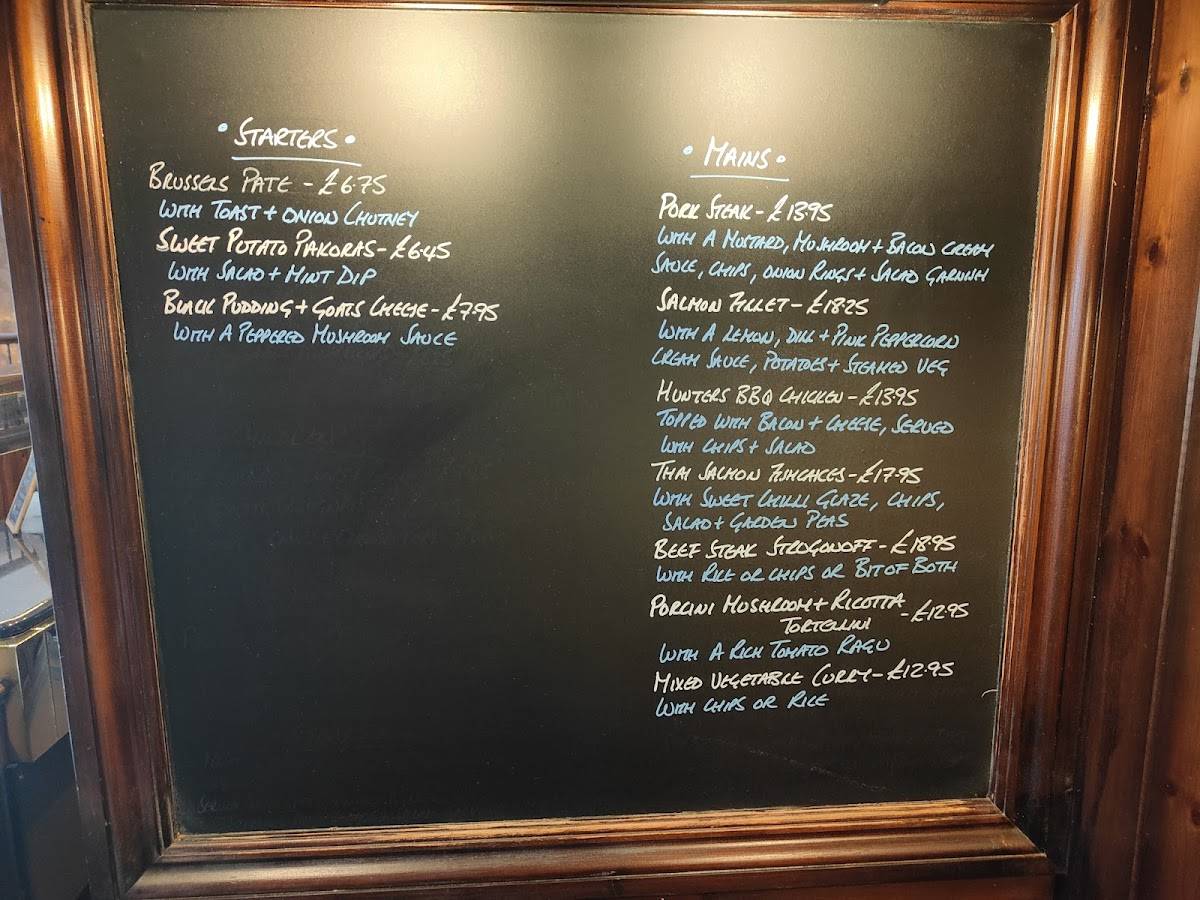 • STARTERS •
BRUSSELS PATE - £6.75
WITH TOAST + ONION CHUTNEY
SWEET POTATO PAKORAS - £6.45
WITH SALAD + MINT DIP
BLACK PUDDING + GOATS CHEESE - £7.95
WITH A PEPPERED MUSHROOM SAUCE
• MAINS •
PORK STEAK - £13.95
WITH A MUSTARD, MUSHROOM + BACON CREAM
SAUCE, CHIPS, ONION RINGS + SALAD GARNISH
SALMON FILLET - £18.25
WITH A LEMON, DILL + PINK PEPPERCORN
CREAM SAUCE, POTATOES + STEAMED VEG
HUNTERS BBQ CHICKEN - £13.95
TOPPED WITH BACON + CHEESE, SERVED
WITH CHIPS + SALAD
THAI SALMON FISHCAKES - £17.95
WITH SWEET CHILLI GLAZE, CHIPS,
SALAD + GARDEN PEAS
BEEF STEAK STROGONOFF - £18.95
WITH RICE OR CHIPS OR BIT OF BOTH
PORCINI MUSHROOM + RICOTTA
TORTELLINI - £12.95
WITH A RICH TOMATO RAGU
MIXED VEGETABLE CURRY - £12.95
WITH CHIPS OR RICE